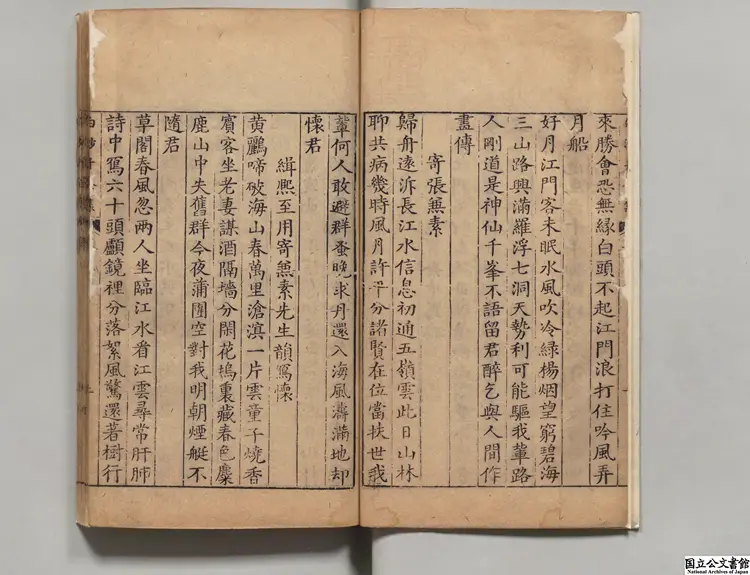 來勝會恐無緣白頭不起江門浪打住吟風弄
月船
好月江門客未眠水風吹冷綠楊烟望窮碧海
三山路興滿羅浮七洞天勢利可能驅我輩路
人剛道是神仙千峯不語留君醉乞與人間作
畫傳
寄張無素
歸舟遠泝長江水信息初通五嶺雲此日山林
聊共病幾時風月許平分諸賢在位當扶世我
輩何人敢避群蚤晚求丹還入海風濤滿地却
懷君
緝熙至用寄無素先生韻寫懷
黄鸝啼破海山春萬里滄溟一片雲童子燒香
賓客坐老妻謀酒隔墻分閑花塢裏藏春色麋
鹿山中失舊群今夜蒲團空對我明朝煙艇不
隨君
草閣春風忽两人坐臨江水看江雲尋常肝肺
詩中寫六十頭顱鏡裡分落絮風驚還著樹行
国立公文書館
National Archives of Japan